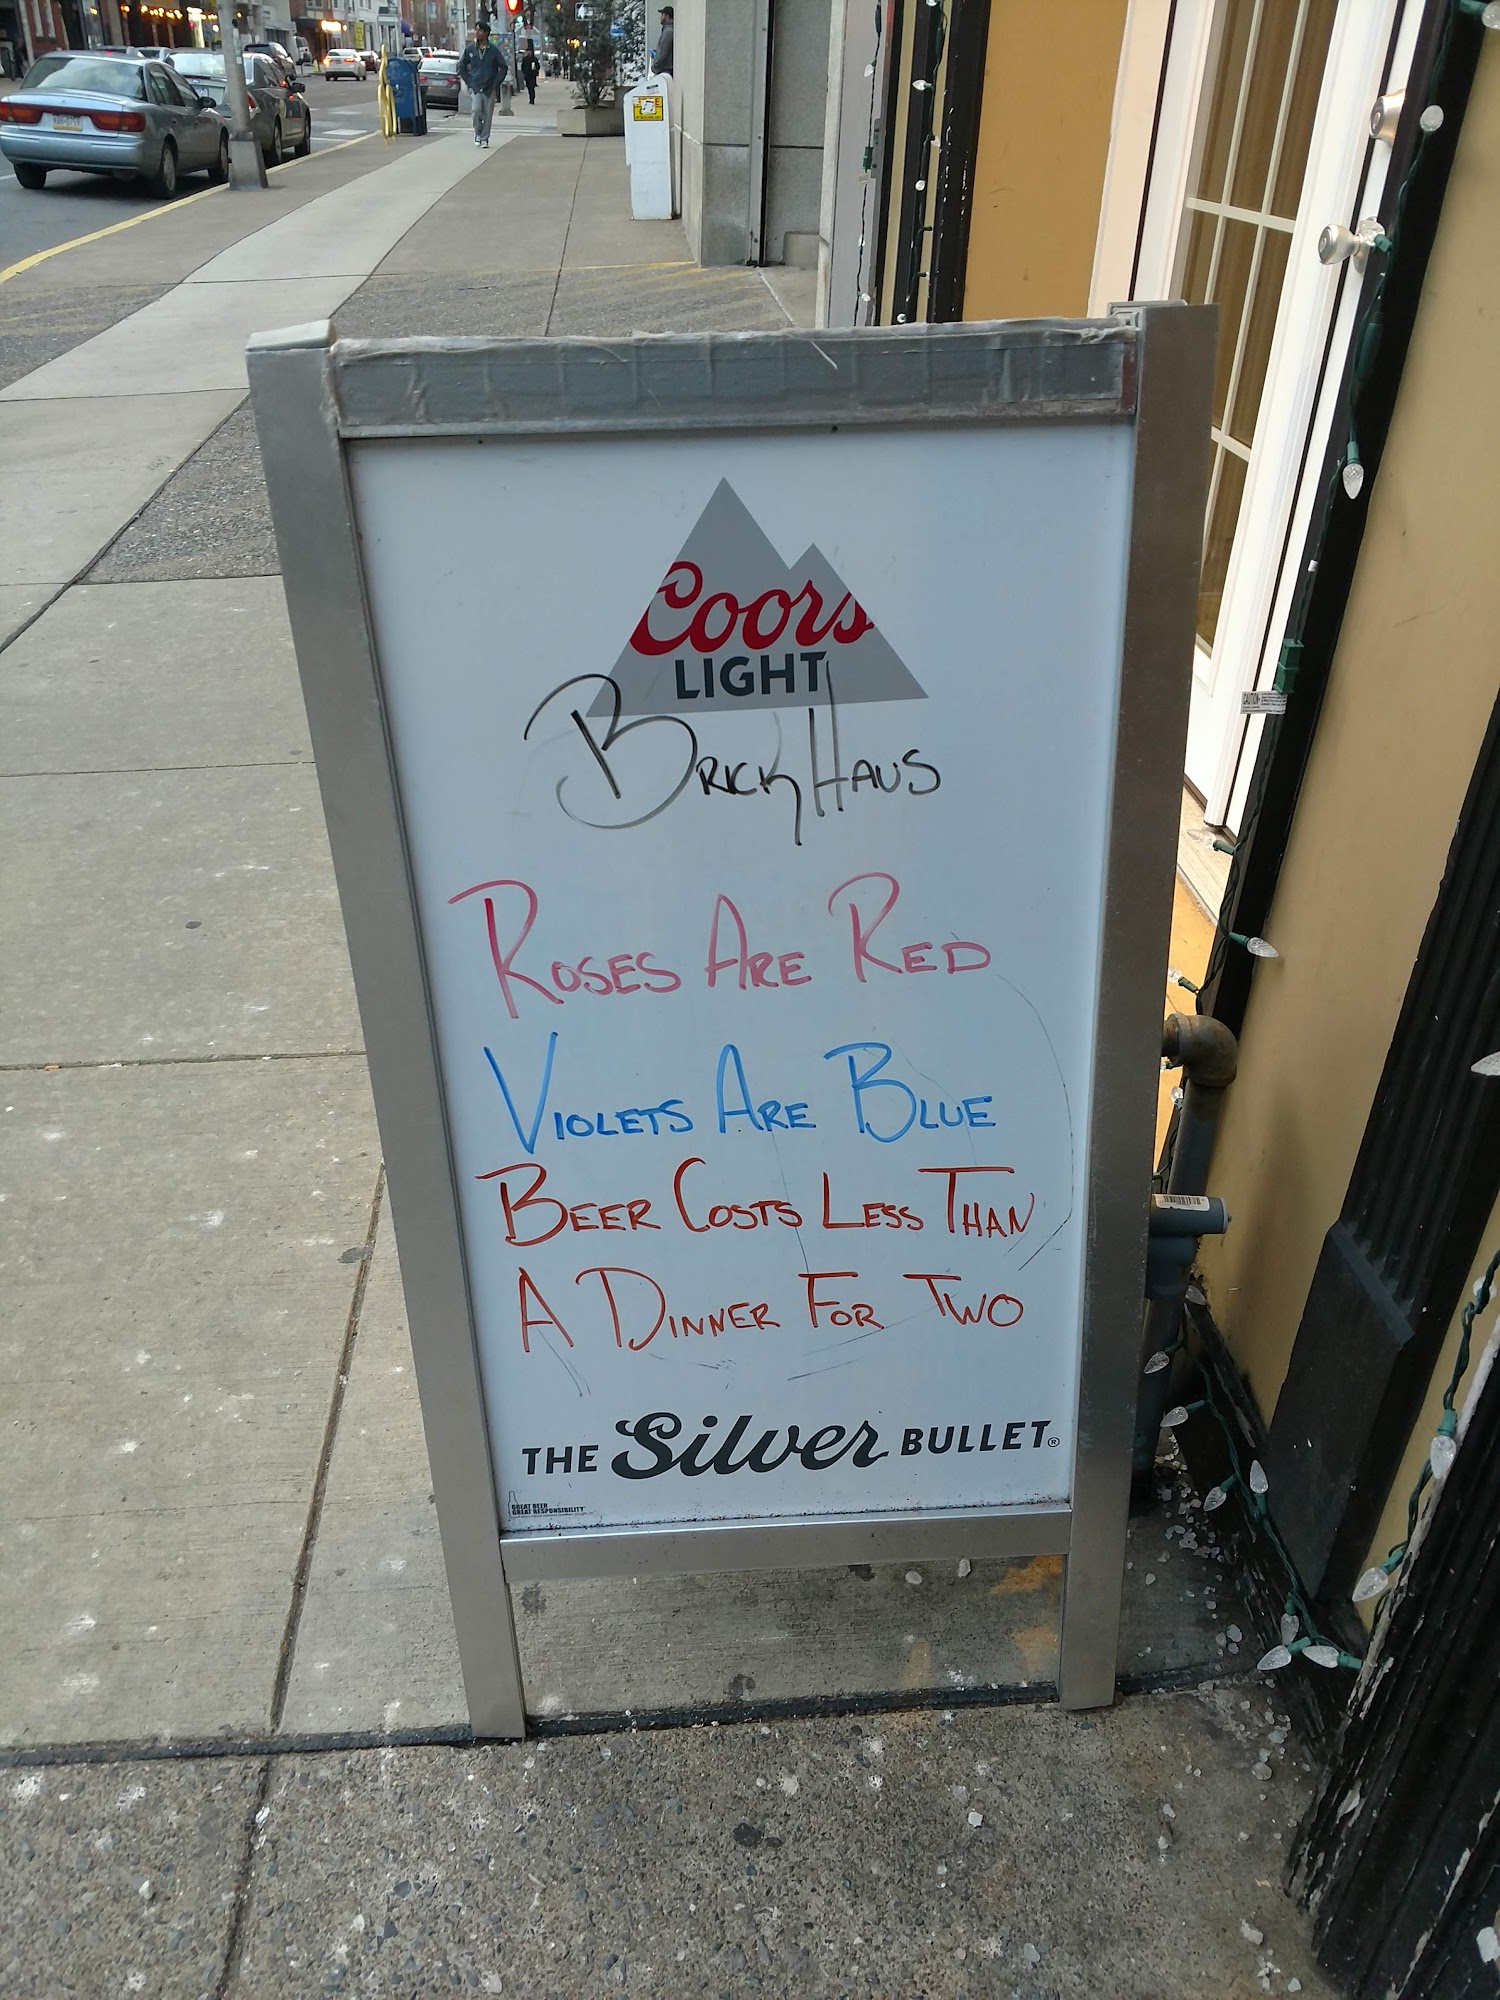 Coors
LIGHT
BRICK HAUS
ROSES ARE RED
VIOLETS ARE BLUE
BEER COSTS LESS THAN
A DINNER FOR TWO
THE Silver BULLET®
GREAT BEER
GREAT RESPONSIBILITY